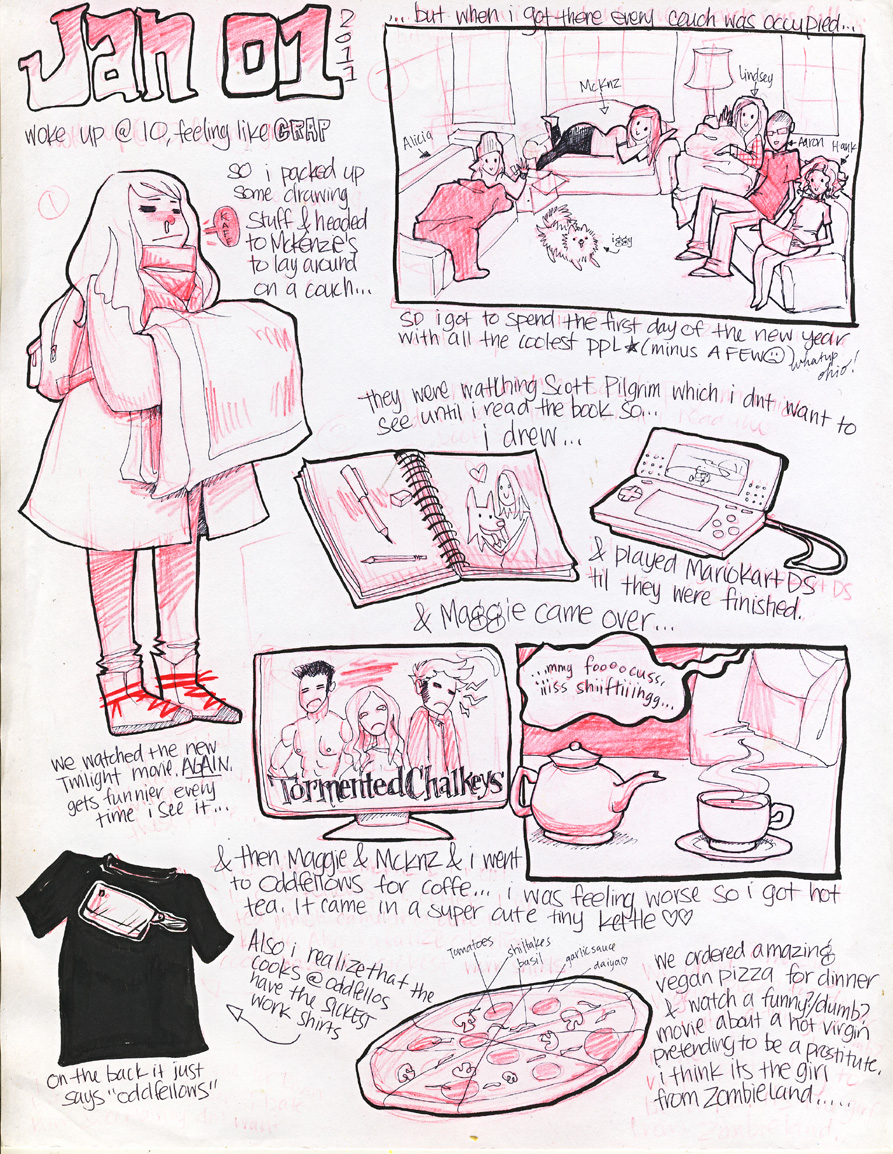 Jan 01
2011
woke up @ 10, feeling like CRAP
so i packed up
some drawing
stuff & headed
to McKenze's
to lay around
on a couch...
1
KAFF
... but when i got there every couch was occupied...
Alicia
McKnz
Lindsey
Aaron
Hank
iggy
so i got to spend the first day of the new year
with all the coolest ppl ★ (minus A FEW ☹)
whatup
ohio!
they were watching Scott Pilgrim which i dnt want to
see until i read the book so...
i drew...
& played MarioKart DS
til they were finished.
& Maggie came over...
we watched the new
Twilight movie. AGAIN.
gets funnier every
time i see it...
Tormented Chalkeys
...mmy foooocuss,
iiiss shiiftiiingg...
& then Maggie & McKnz & i went
to oddfellows for coffe... i was feeling worse so i got hot
tea. It came in a super cute tiny kettle ♡♡
Also i
realize that the
cooks @ oddfellos
have the SICKEST
work shirts
on the back it just
says "oddfellows"
Tomatoes
shiitakes
basil
garlic sauce
daiya♡
we ordered amazing
vegan pizza for dinner
& watch a funny?/dumb?
movie about a hot virgin
pretending to be a prostitute,
i think its the girl
from Zombieland.....